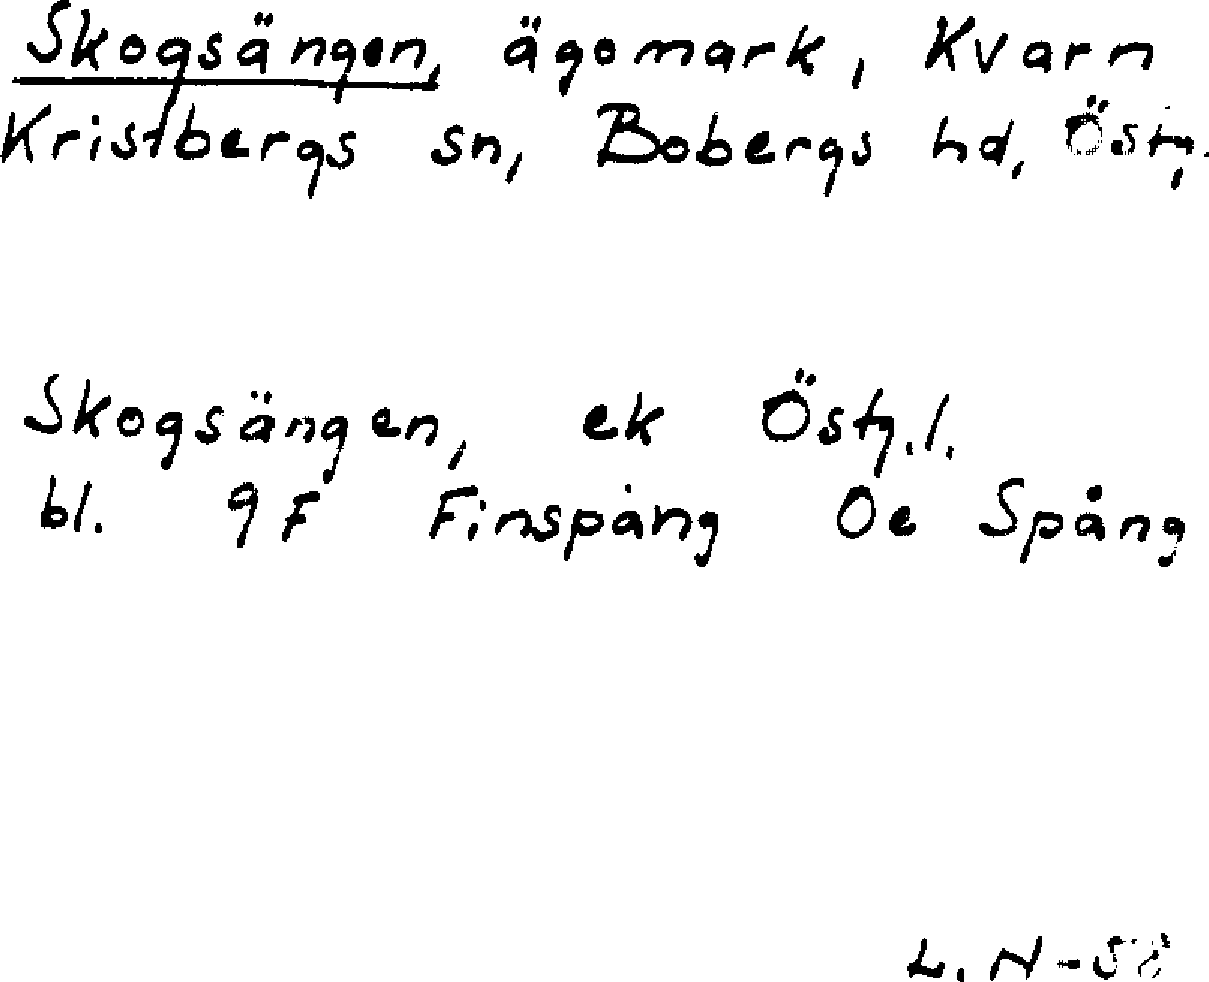 Skogsängen, ägomark, Kvarn
Kristbergs sn, Bobergs hd, Östg.
Skogsängen, ek Östg.l.
bl. 9F Finspång 0e Spång
L. N-58